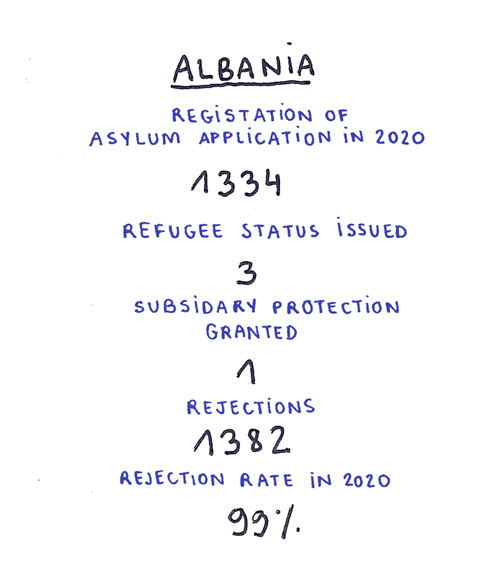 ALBANiA
REGiSTATiON OF
ASYLUM APPLiCATiON iN 2020
1334
REFUGEE STATUS iSSUED
3
SUBSiDARY PROTECTiON
GRANTED
1
REJECTiONS
1382
REJECTiON RATE iN 2020
99%